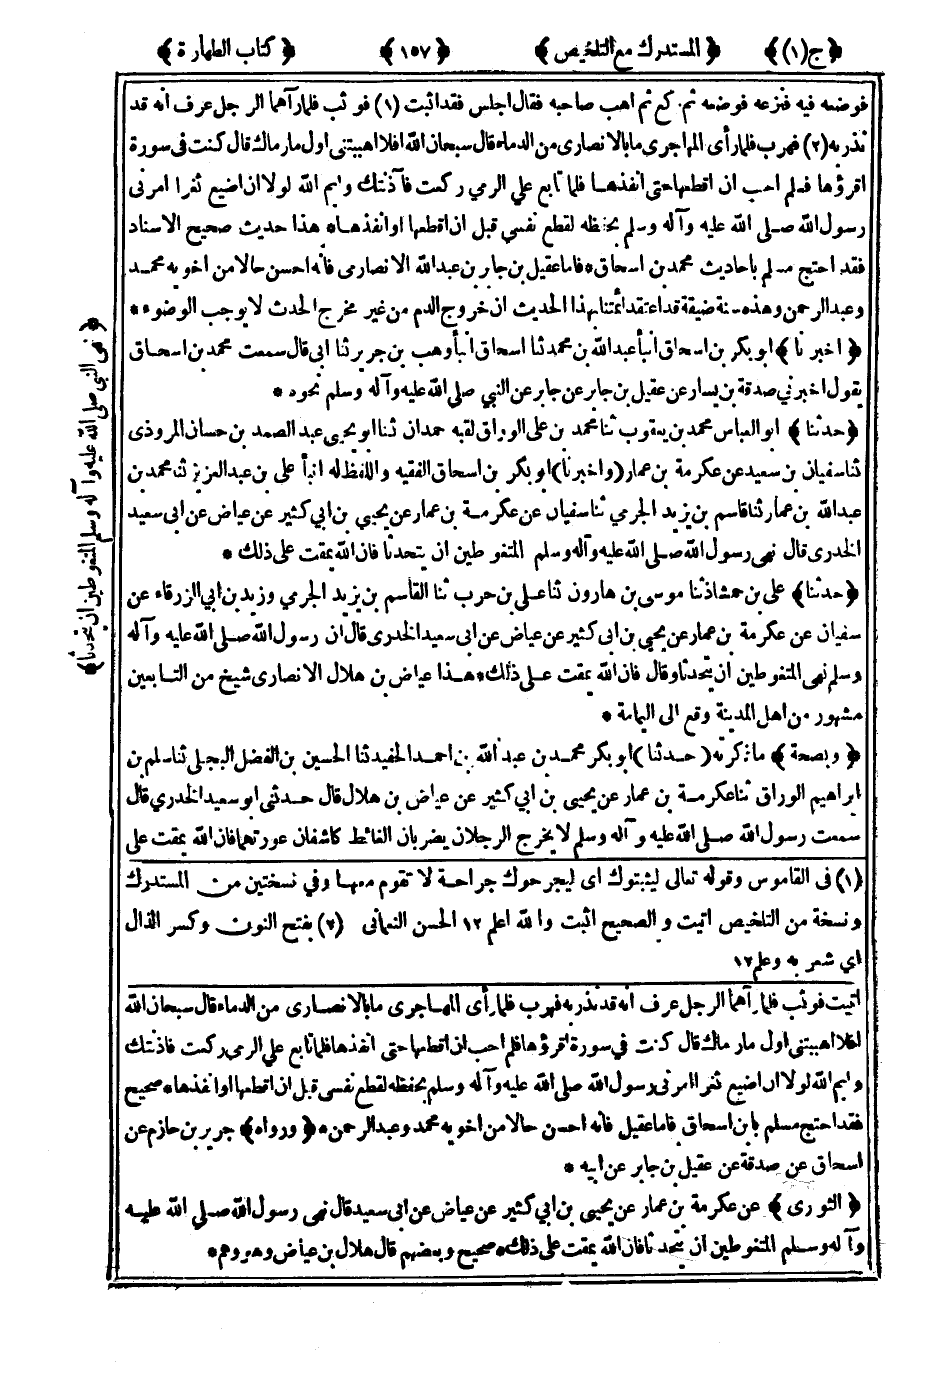 ﴿ ج(١) ﴾ ﴿ المستدرك مع التلخيص ﴾ ﴿ ١٥٧ ﴾ ﴿ كتاب الطهارة ﴾
فوضعه فيه فنزعه فوضعه ثم ركع ثم اهب صاحبه فقال اجلس فقد اثبت (١) فوثب فلما رآهما الرجل عرف انه قد
نذر به (٢) فهرب فلما رأى المهاجرى ما بالانصارى من الدماء قال سبحان الله افلا اهببتنى اول ما رماك قال كنت فى سورة
اقرؤها فلم احب ان اقطعها حتى انفذها فلما تابع علي الرمي ركعت فآذنتك وايم الله لولا ان اضيع ثغرا امرنى
رسول الله صلى الله عليه وآله وسلم بحفظه لقطع نفسي قبل ان اقطعها او انفذها * هذا حديث صحيح الاسناد
فقد احتج مسلم باحاديث محمد بن اسحاق * فاما عقيل بن جابر بن عبدالله الانصارى فانه احسن حالا من اخويه محمد
وعبدالرحمن وهذه سنة ضيقة قد اعتقد أئمتنا بهذا الحديث ان خروج الدم من غير مخرج الحدث لا يوجب الوضوء *
﴿ اخبرنا ﴾ ابو بكر بن اسحاق انبأ عبدالله بن محمد ثنا اسحاق انبأ وهب بن جرير ثنا ابى قال سمعت محمد بن اسحاق
يقول اخبرني صدقة بن يسار عن عقيل بن جابر عن جابر عن النبي صلى الله عليه وآله وسلم نحوه *
﴿ حدثنا ﴾ ابو العباس محمد بن يعقوب ثنا محمد بن على الوراق لقبه حمدان ثنا ابو يحيى عبد الصمد بن حسان المروذى
ثنا سفيان بن سعيد عن عكرمة بن عمار (واخبرنا) ابو بكر بن اسحاق الفقيه واللفظ له انبأ على بن عبدالعزيز ثنا محمد بن
عبدالله بن عمار ثنا قاسم بن يزيد الجرمي ثنا سفيان عن عكرمة بن عمار عن يحيى بن ابي كثير عن عياض عن ابى سعيد
الخدرى قال نهى رسول الله صلى الله عليه وآله وسلم المتغوطين ان يتحدثا فان الله يمقت على ذلك *
﴿ حدثنا ﴾ على بن حمشاذ ثنا موسى بن هارون ثنا على بن حرب ثنا القاسم بن يزيد الجرمي وزيد بن ابي الزرقاء عن
سفيان عن عكرمة بن عمار عن يحيى بن ابى كثير عن عياض عن ابى سعيد الخدرى قال ان رسول الله صلى الله عليه وآله
وسلم نهى المتغوطين ان يتحدثا وقال فان الله يمقت على ذلك * هذا عياض بن هلال الانصارى شيخ من التابعين
مشهور من اهل المدينة وقع الى اليمامة *
﴿ وبصحة ﴾ ما ذكرته (حدثنا) ابو بكر محمد بن عبدالله بن احمد الحفيد ثنا الحسين بن الفضل البجلى ثنا سلم بن
ابراهيم الوراق ثنا عكرمة بن عمار عن يحيى بن ابي كثير عن عياض بن هلال قال حدثنى ابو سعيد الخدري قال
سمعت رسول الله صلى الله عليه وآله وسلم لا يخرج الرجلان يضربان الغائط كاشفان عورتهما فان الله يمقت على
(١) فى القاموس وقوله تعالى ليثبتوك اى ليجرحوك جراحة لا تقوم معها وفي نسختين من المستدرك
ونسخة من التلخيص اتيت والصحيح اثبت والله اعلم ١٢ الحسن النعمانى (٢) بفتح النون وكسر الذال
اي شعر به وعلم ١٢
اتيت فوثب فلما رآهما الرجل عرف انه قد نذر به فهرب فلما رأى المهاجرى ما بالانصارى من الدماء قال سبحان الله
افلا اهببتنى اول ما رماك قال كنت في سورة اقرؤها فلم احب ان اقطعها حتى انفذها فلما تابع علي الرمى ركعت فاذنتك
وايم الله لولا ان اضيع ثغرا امرنى رسول الله صلى الله عليه وآله وسلم بحفظه لقطع نفسى قبل ان اقطعها او انفذها * صحيح
فقد احتج مسلم بابن اسحاق فاما عقيل فانه احسن حالا من اخويه محمد وعبدالرحمن * ﴿ ورواه ﴾ جرير بن حازم عن
اسحاق عن صدقة عن عقيل بن جابر عن ابيه *
﴿ الثورى ﴾ عن عكرمة بن عمار عن يحيى بن ابي كثير عن عياض عن ابى سعيد قال نهى رسول الله صلى الله عليه
وآله وسلم المتغوطين ان يتحدثا فان الله يمقت على ذلك * صحيح وبعضهم قال هلال بن عياض وهو وهم *
﴿ نهى النبى صلى الله عليه وآله وسلم المتغوطين ان يتحدثا ﴾